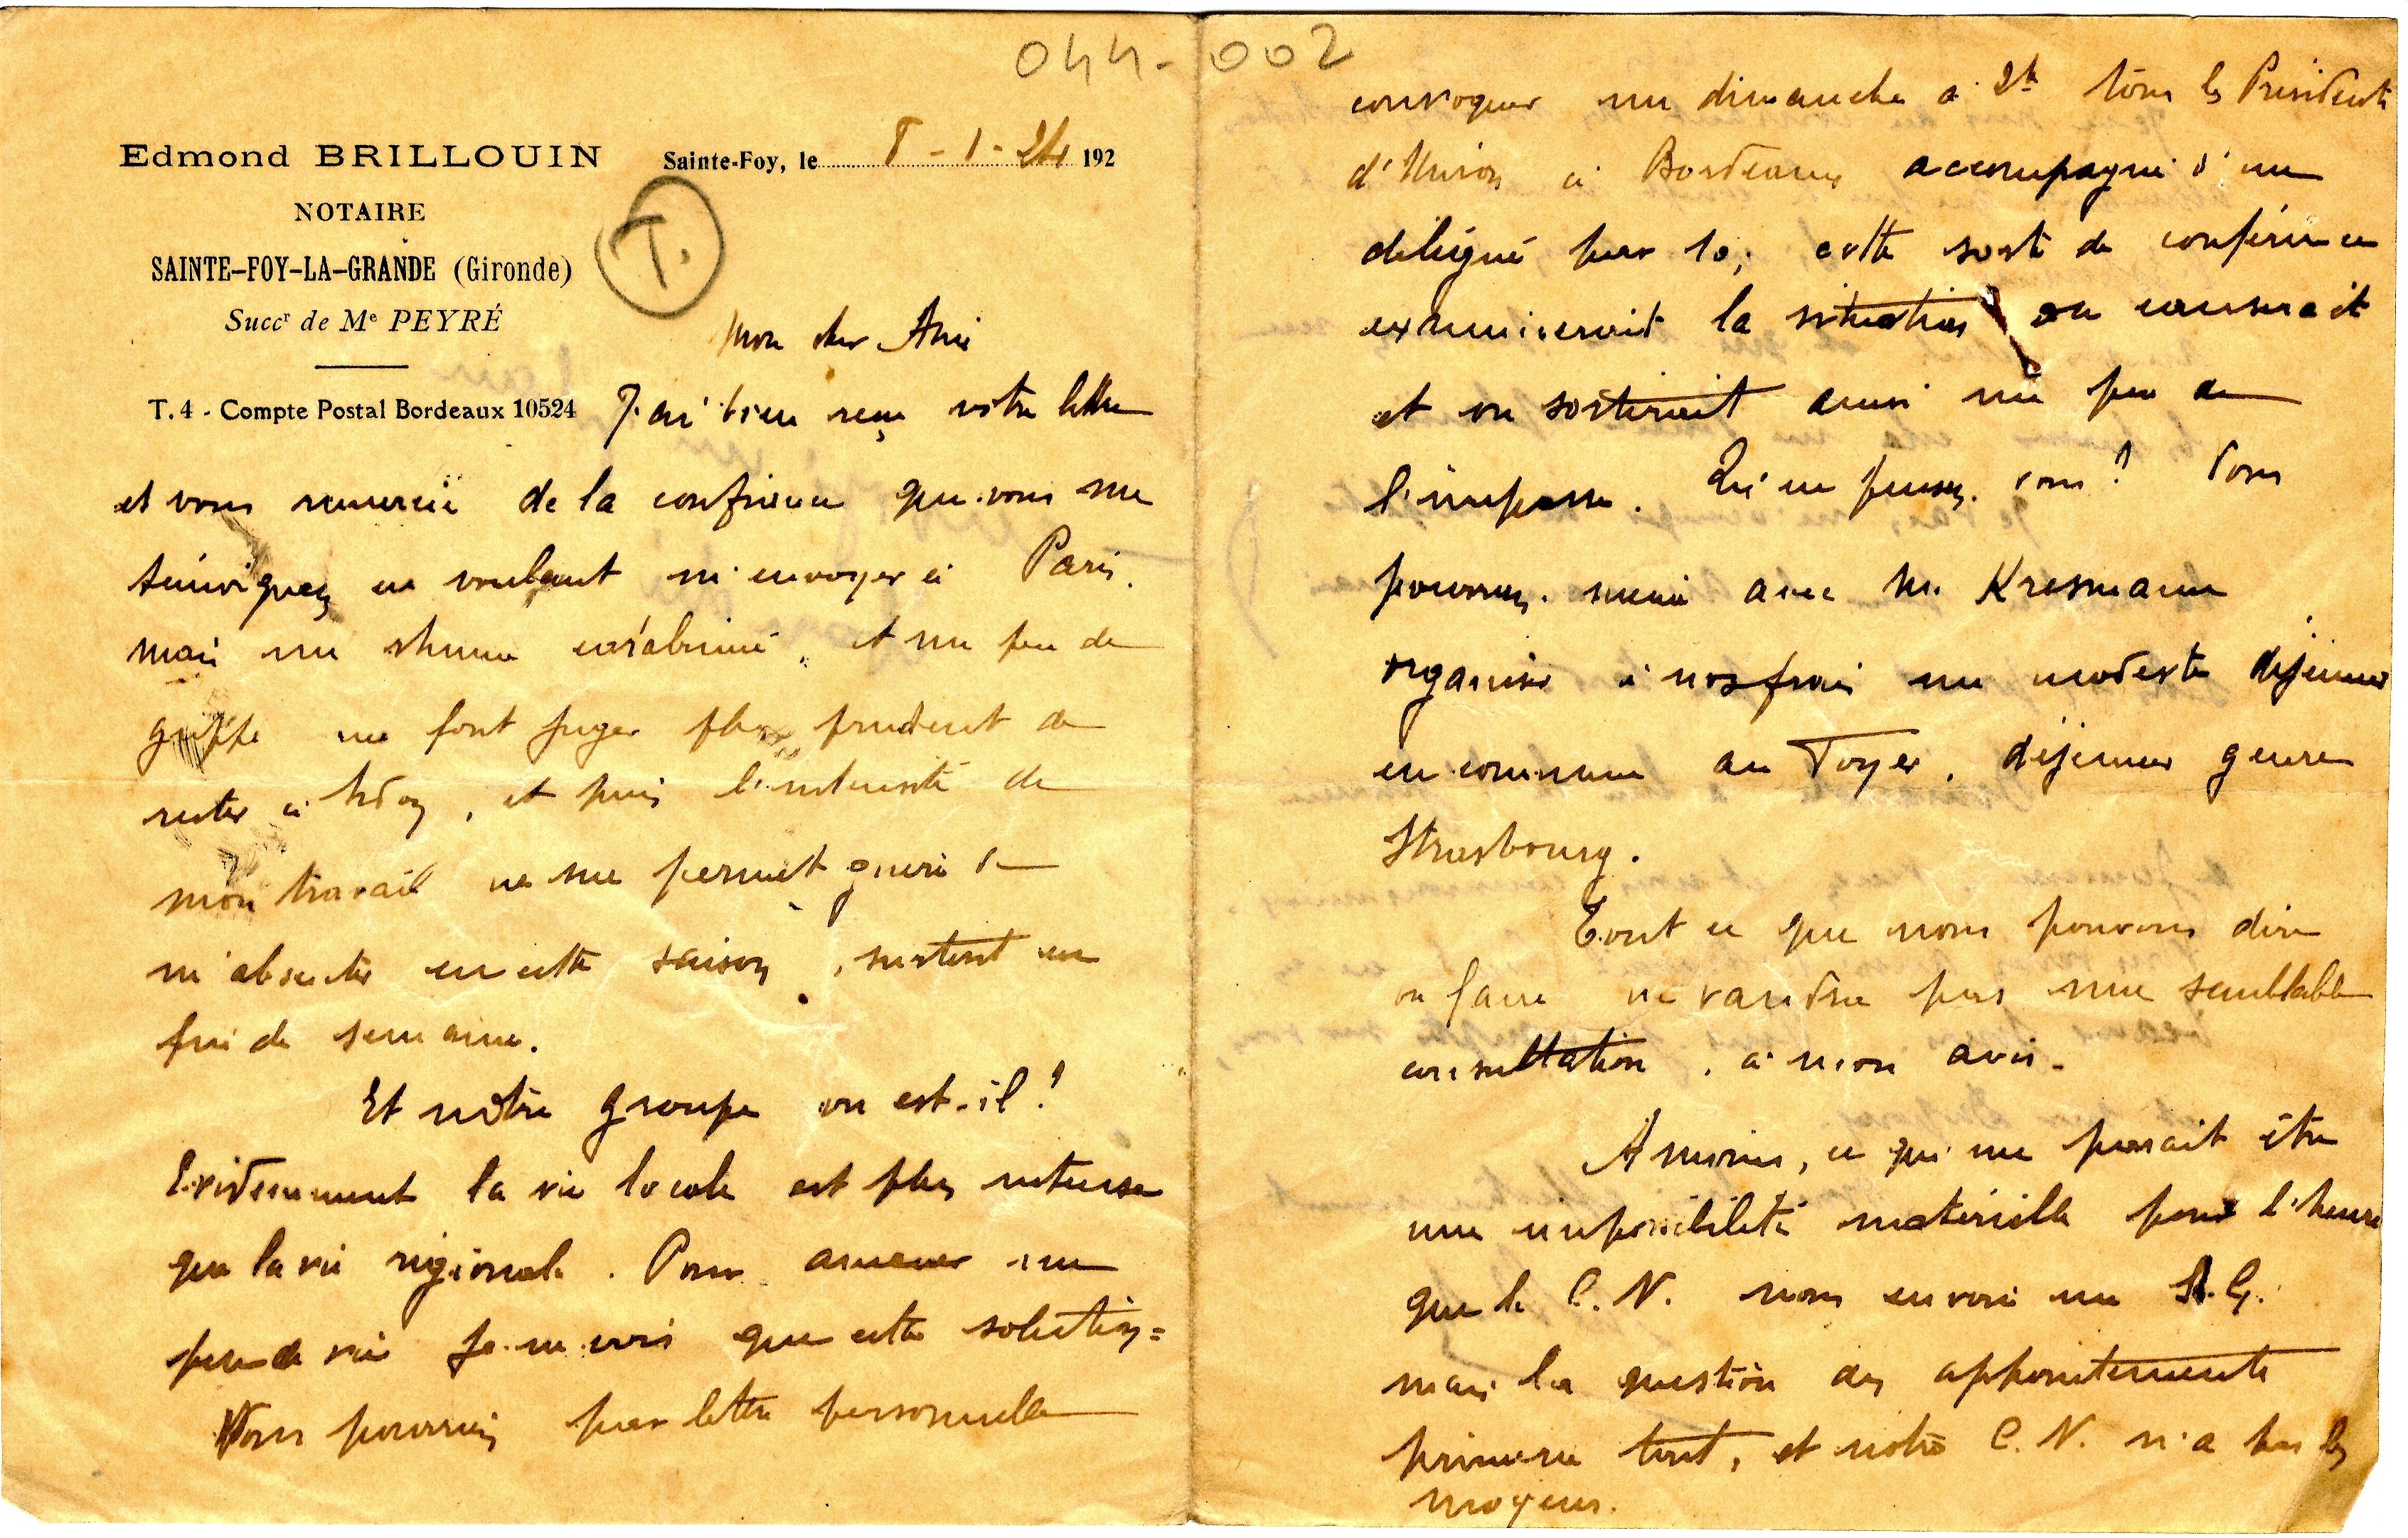 044-002
Edmond BRILLOUIN
NOTAIRE
SAINTE-FOY-LA-GRANDE (Gironde)
Succr de Me PEYRÉ
T. 4 - Compte Postal Bordeaux 10524
Sainte-Foy, le 8-1-24 192
T.
Mon cher Ami
J'ai bien reçu votre lettre
et vous remercie de la confiance que vous me
témoignez en voulant m'envoyer à Paris.
mais un rhume carabiné, et un peu de
grippe me font juger plus prudent de
rester à, et puis l'intensité de
mon travail ne me permet guère de
m'absenter en cette saison, surtout en
fin de semaine.
Et notre groupe où est-il?
Evidemment la vie locale est plus intense
que la vie régionale. Pour amener un
peu de vie je ne vois que cette solution=
Vous pourriez par lettre personnelle
convoquer un dimanche à 2h tous les Présidents
d'Union à Bordeaux accompagné d'un
délégué par 10; cette sorte de conférence
examinerait la situation on causerait
et on sortirait ainsi un peu de
l'impasse. Qu'en pensez-vous? Vous
pourriez même avec M. Kresmann
organiser à nos frais un modeste déjeuner
en commun au Foyer, déjeuner genre
Strasbourg.
Tout ce que nous pouvons dire
ou faire ne vaudra pas une semblable
consultation, à mon avis.
A moins, ce qui me parait être
une impossibilité matérielle pour l'heure
que le C.N. nous envoie un S.G.
mais la question des appointements
prime tout, et notre C.N. n'a pas les
moyens.